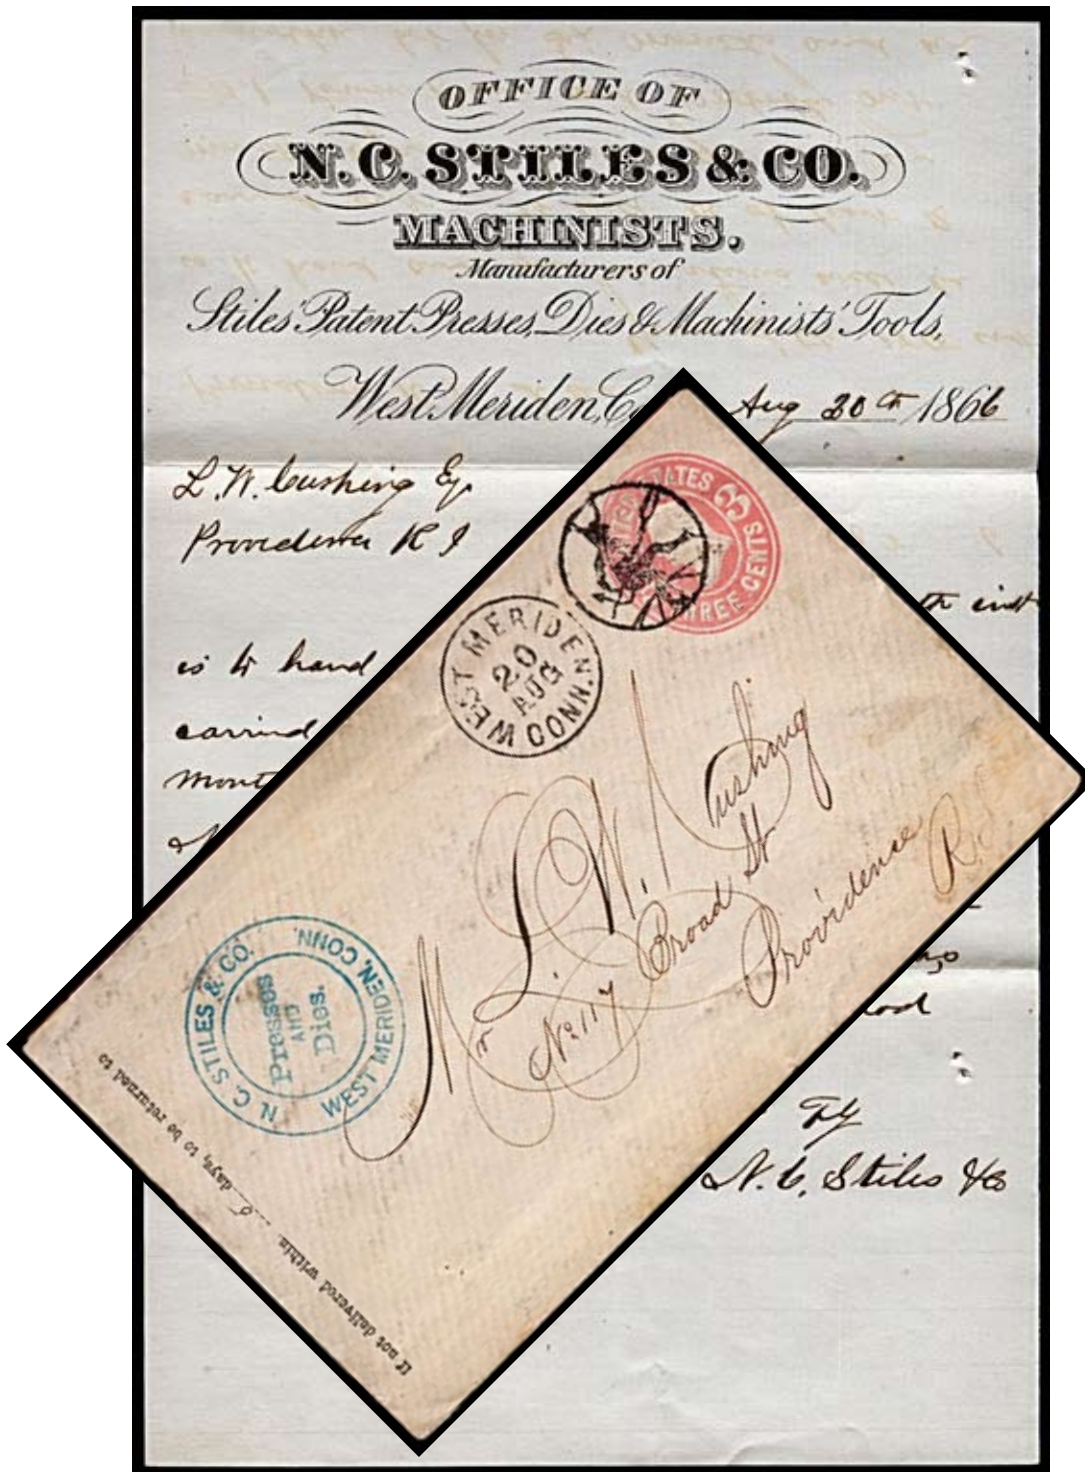 OFFICE OF
N. C. STILES & CO.
MACHINISTS.
Manufacturers of
Stiles' Patent Presses, Dies & Machinists' Tools,
West Meriden, Aug 20th 1866
L. W. Cushing
Providence R I
th inst
is to hand
carried
N. C. Stiles & Co
STATES
3
THREE CENTS
WEST MERIDEN CONN.
20
AUG
Mr L. W. Cushing
No 117 Broad St
Providence
R.I.
N. C. STILES & CO.
WEST MERIDEN, CONN.
Presses
AND
Dies.
If not delivered within days, to be returned to